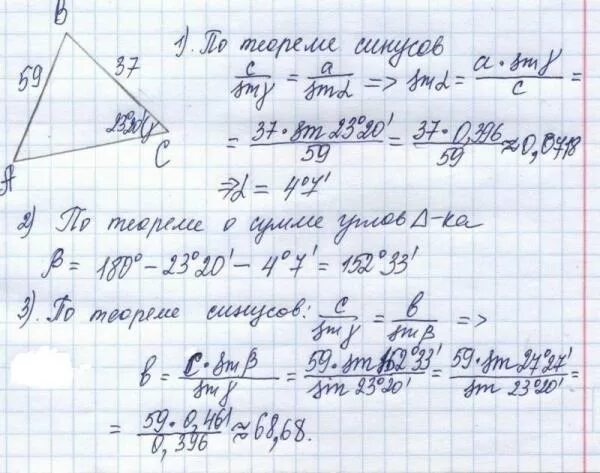 B
59
37
23°20'
γ
A
C
1). По теореме синусов
c/sinγ = a/sinα => sinα = a·sinγ/c =
= 37·sin23°20'/59 = 37·0,396/59 ≈ 0,0718
=> α = 4°7'
2) По теореме о сумме углов Δ-ка
β = 180° - 23°20' - 4°7' = 152°33'
3). По теореме синусов: c/sinγ = b/sinβ =>
b = c·sinβ/sinγ = 59·sin152°33'/sin 23°20' = 59·sin27°27'/sin 23°20' =
= 59·0,461/0,396 ≈ 68,68.